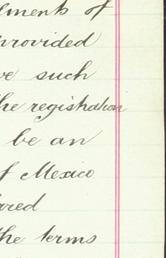 lments of
provided
ve such
he registration
be an
f Mexico
ored
the terms